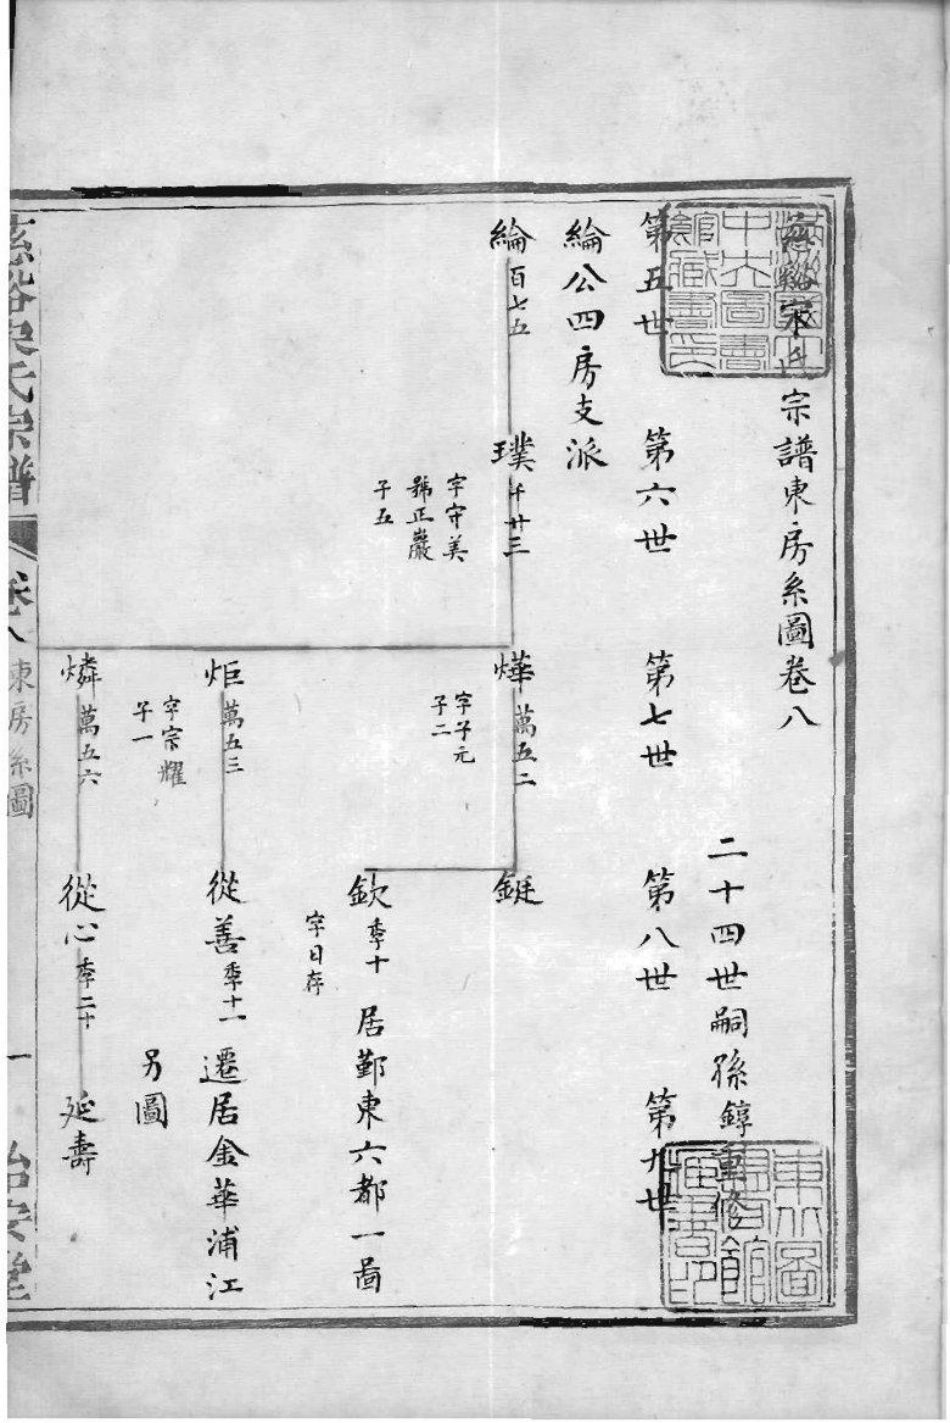 宗譜東房系圖卷八
二十四世嗣孫錞重修
第五世 第六世 第七世 第八世 第九世
綸公四房支派
綸 百七五 璞 千廿三 燁 萬五二 鋌
字守美
號正巖
子五
字子元
子二
欽 季十 居鄞東六都一啚
字日存
炬 萬五三 從善 季十一 遷居金華浦江
字宗耀
子一
另圖
燐 萬五六 從心 季二十 延壽
氏宗譜 卷八 東房系圖 一